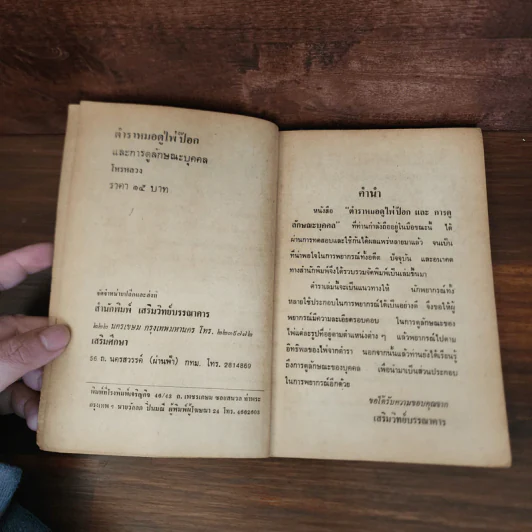 ตำราหมอดูไพ่ป๊อก
และการดูลักษณะบุคคล
โหรหลวง
ราคา ๑๕ บาท
จัดจำหน่ายปลีกและส่งที่
สำนักพิมพ์ เสริมวิทย์บรรณาคาร
นครเขษม กรุงเทพมหานคร โทร.
เสริมศึกษา
ถ. นครสวรรค์ (ผ่านฟ้า) กทม. โทร. 2814869
พิมพ์ที่โรงพิมพ์เจริญกิจ 40/42 ถ. เพชรเกษม
กรุงเทพ ฯ ผู้พิมพ์ผู้โฆษณา 24 โทร.
คำนำ
หนังสือ "ตำราหมอดูไพ่ป๊อก และ การดู
ลักษณะบุคคล" ที่ท่านกำลังถืออยู่ในมือขณะนี้ ได้
ผ่านการทดสอบและใช้กันได้ผลแพร่หลายมาแล้ว จนเป็น
ที่น่าพอใจในการพยากรณ์ทั้งอดีต ปัจจุบัน และอนาคต
ทางสำนักพิมพ์จึงได้รวบรวมจัดพิมพ์เป็นเล่มขึ้นมา
ตำราเล่มนี้จะเป็นแนวทางให้ นักพยากรณ์ทั้ง
หลายใช้ประกอบในการพยากรณ์ได้เป็นอย่างดี จึงขอให้ผู้
พยากรณ์มีความละเอียดรอบคอบ ในการดูลักษณะของ
ไพ่แต่ละรูปที่อยู่ตามตำแหน่งต่าง ๆ แล้วพยากรณ์ไปตาม
อิทธิพลของไพ่จากตำรา นอกจากนั้นแล้วท่านยังได้เรียนรู้
ถึงการดูลักษณะของบุคคล เพื่อนำมาเป็นส่วนประกอบ
ในการพยากรณ์อีกด้วย
ขอได้รับความขอบคุณจาก
เสริมวิทย์บรรณาคาร